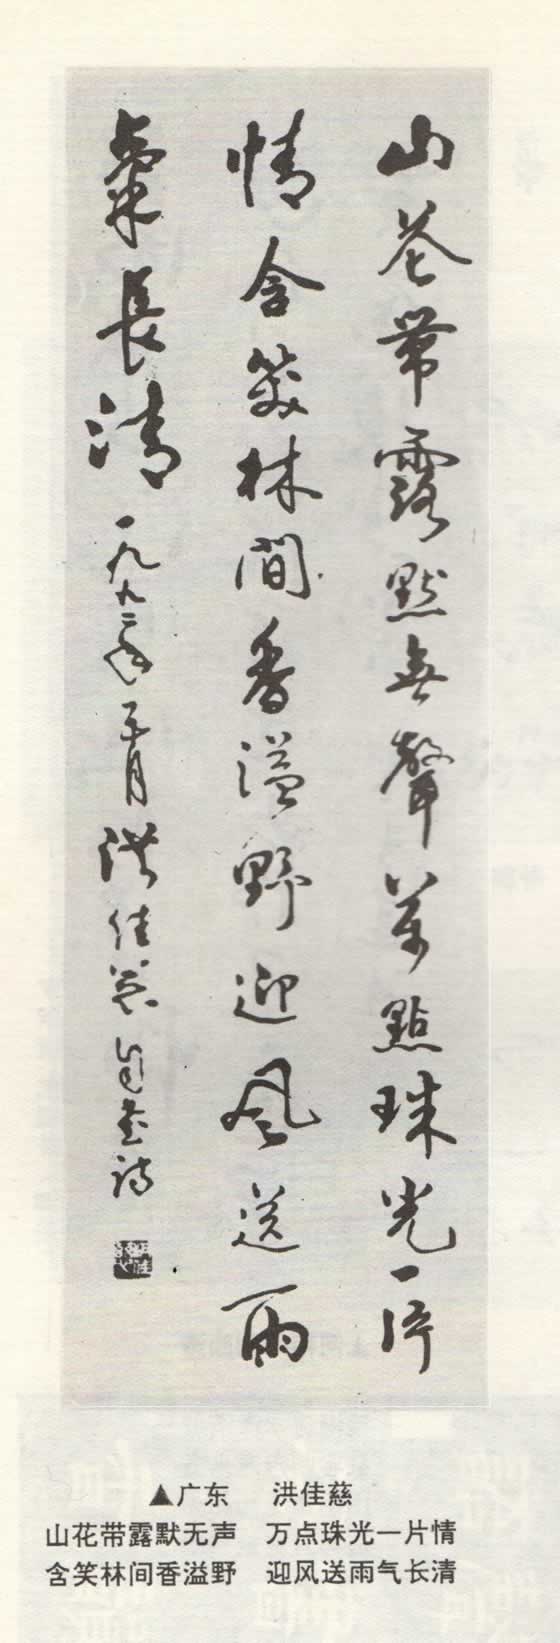 山花帶露默無聲萬點珠光一片
情含笑林間香溢野迎風送雨
氣長清一九九二年六月洪佳慈自書詩
▲广东 洪佳慈
山花带露默无声 万点珠光一片情
含笑林间香溢野 迎风送雨气长清